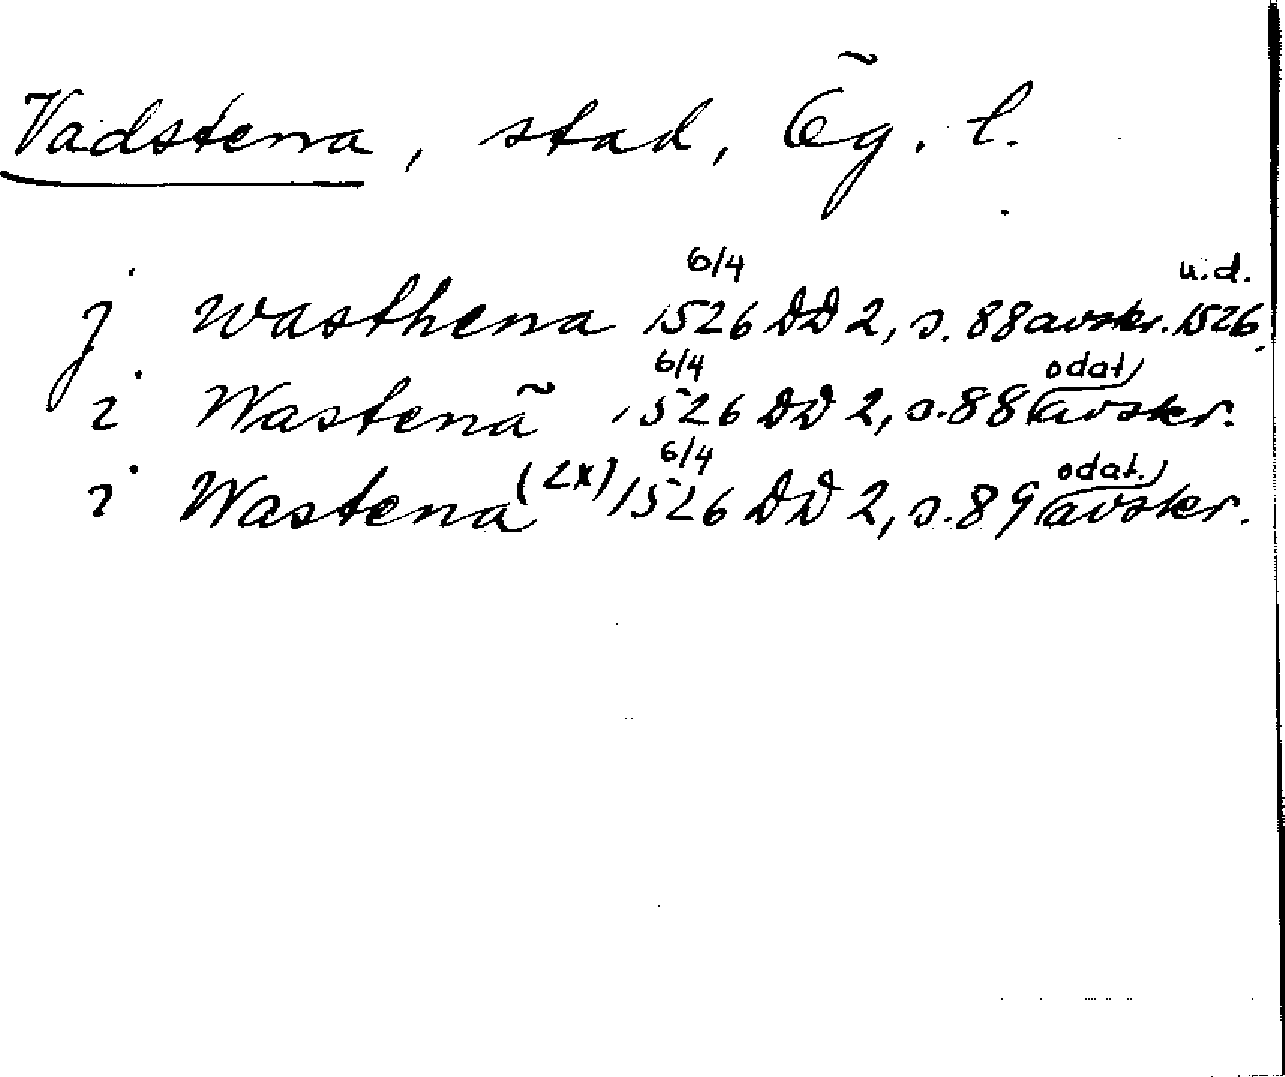 Vadstena, stad, Ög. l.
j wasthena 6/4 1526 DD 2, s. 88 avskr. u.d. 1526.
i Wastenā 6/4 1526 DD 2, s. 88 (odat) avskr.
i Wastena (2x) 6/4 1526 DD 2, s. 89 (odat.) avskr.